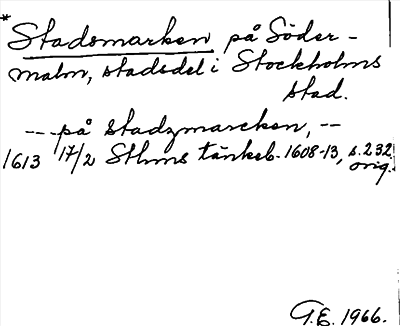 * Stadsmarken på Söder-
malm, stadsdel i Stockholms
stad.
--- på stadzmarcken, --
1613 17/2 Sthms tänkeb. 1608-13, s. 232.
orig.
G.E. 1966.